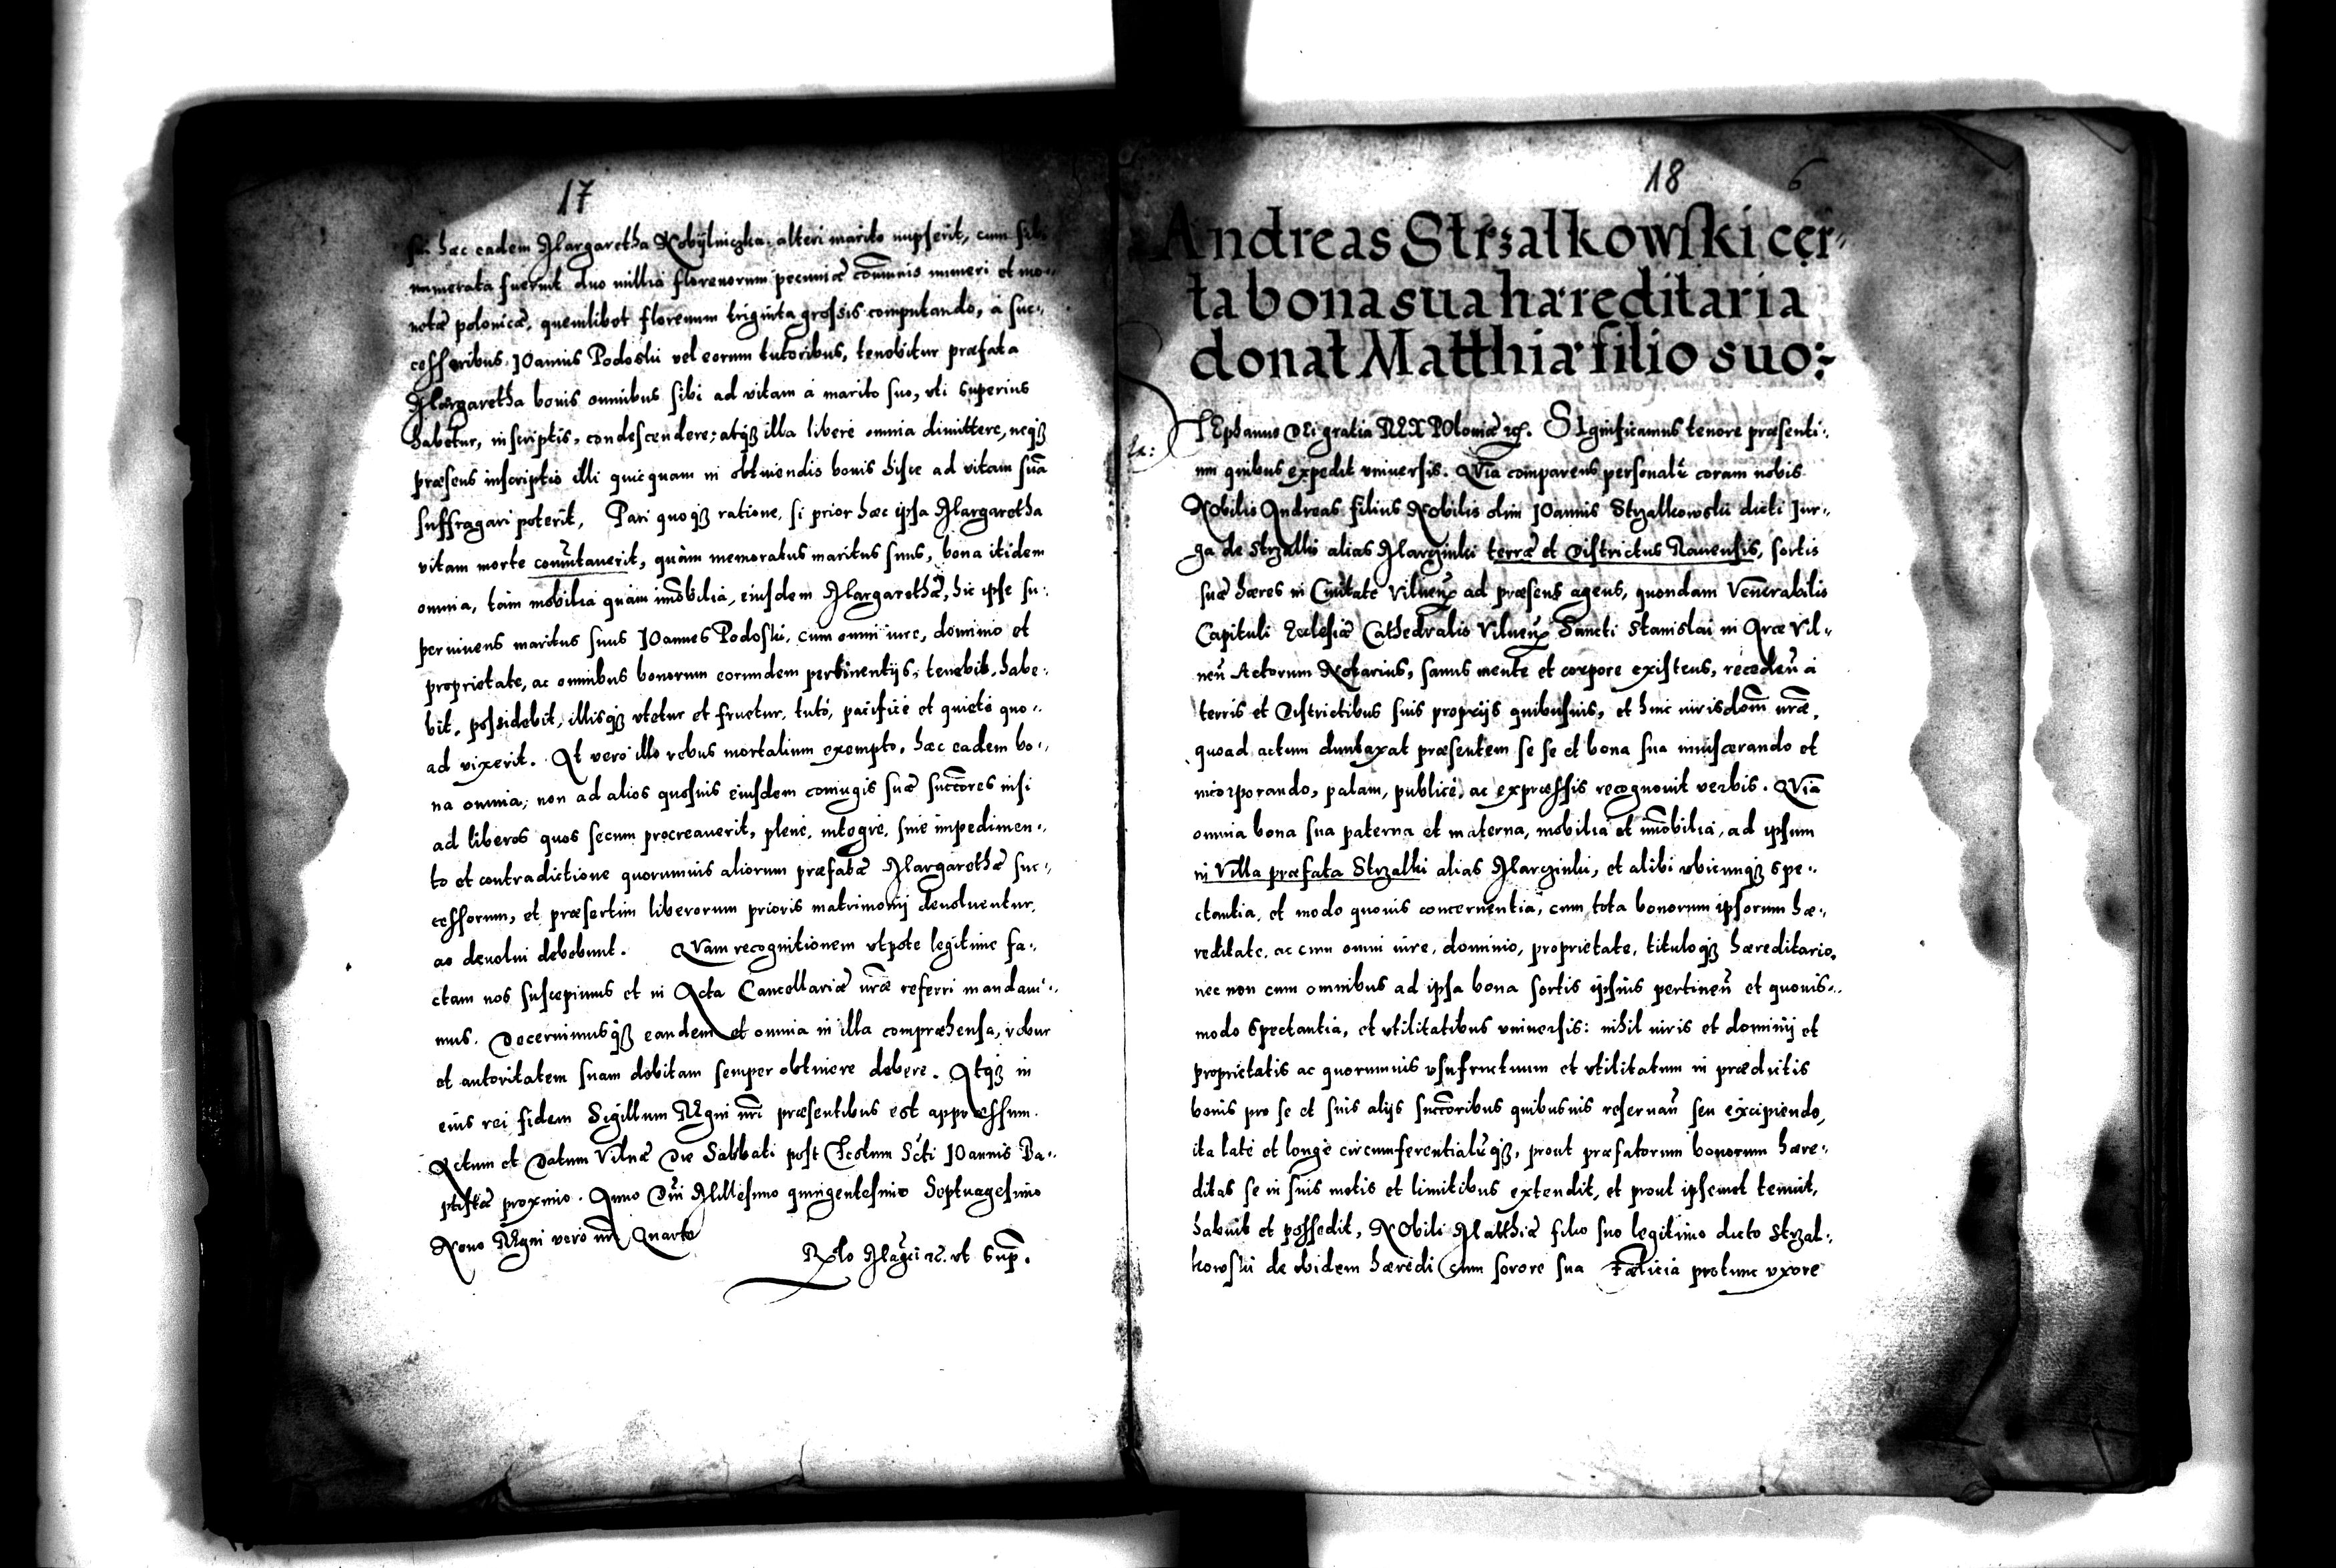 17
si hæc eadem Margaretha Kobÿlniczka alteri marito nupserit, cum sibi
numerata fuerint duo millia florenorum pecuniæ com̃unis numeri et mo-
netæ polonicæ, quemlibet florenum triginta grossis computando, à suc-
cessoribus Joannis Podoski vel eorum tutoribus, tenebitur præfata
Margaretha bonis omnibus sibi ad vitam à marito suo, vti superius
habetur, inscriptis, condescendere; atqꝫ illa liberè omnia dimittere, neqꝫ
præsens inscriptio illi quicquam in obtinendis bonis hisce ad vitam suã
suffragari poterit, Pari quoqꝫ ratione, si prior hæc ipsa Margaretha
vitam morte com̃utauerit, quàm memoratus maritus suus, bona itidem
omnia, tàm mobilia quàm im̃obilia, eiusdem Margarethæ, hic ipse su-
peruiuens maritus suus Joannes Podoski, cum omni iure, dominio et
proprietate, ac omnibus bonorum eorundem pertinentijs, tenebit, habe-
bit, possidebit, illisqꝫ vtetur et fruetur, tutò, pacificè et quietè quo-
ad vixerit. At verò illo rebus mortalium exempto, hæc eadem bo-
na omnia, non ad alios quosuis eiusdem coniugis suæ succ̃ores nisi
ad liberos quos secum procreauerit, plenè, integrè, sine impedimen-
to et contradictione quorumuis aliorum præfatæ Margarethæ suc-
cessorum, et præsertim liberorum prioris matrimonij deuoluentur,
ac deuolui debebunt. Quam recognitionem vtpote legitimè fa-
ctam nos suscepimus et in Acta Cancellariæ nr̃æ referri mandaui-
mus. Decernimusqꝫ eandem et omnia in illa compræhensa, robur
et autoritatem suam debitam semper obtinere debere. Atqꝫ in
eius rei fidem Sigillum Regni nr̃i præsentibus est appressum.
Actum et Datum Vilnæ Die Sabbati post Festum S̃cti Joannis Ba-
ptistæ proximo. Anno Dñi Millesimo quingentesimo Septuagesimo
Nono Regni verò nr̃i Quarto
Rel̃o Mag̃ci ꝛc. vt sup̃.
18
6
Andreas Strsalkowski cer-
ta bona sua hæreditaria
donat Matthiæ filio suo:
TEphanus DEi gratia REX POloniæ ꝛc. SIgnificamus tenore præsenti-
um quibus expedit vniuersis. QVia comparens personalr̃ coram nobis
Nobilis Andreas filius Nobilis olim JOannis Strzalkowski dicti Jur-
ga de Strzalki alias Marcinki terræ et Districtus Rauensis, sortis
suæ hæres in Ciuitate Vilneñ ad præsens agens, quondam Ven̄erabilis
Capituli Ecclesiæ Cathedralis Vilneñ Sancti Stanislai in Arce Vil-
neñ Actorum Notarius, sanus mente et corpore existens, recedeñ à
terris et Districtibus suis proprijs quibusuis, et huic iurisdom̃ nr̃æ,
quoad actum duntaxat præsentem se se et bona sua inuiscerando et
incorporando, palam, publicè, ac expressis recognouit verbis. QVia
omnia bona sua paterna et materna, mobilia et im̃obilia, ad ipsum
in Villa præfata Strzalki alias Marcinki, et alibi vbicunqꝫ spe-
ctantia, et modo quouis concernentia, cum tota bonorum ipsorum hæ-
reditate, ac cum omni iure, dominio, proprietate, tituloqꝫ hæreditario,
nec non cum omnibus ad ipsa bona sortis ipsius pertineñ et quouis-
modo spectantia, et vtilitatibus vniuersis: nihil iuris et dominij et
proprietatis ac quorumuis vsufructuum et vtilitatum in prædictis
bonis pro se et suis alijs succ̃oribus quibusuis reseruañ seu excipiendo,
ita latè et longè circumferentialr̃qꝫ, prout præfatorum bonorum hære-
ditas se in suis metis et limitibus extendit, et prout ipsemet tenuit,
habuit et possedit, NObili Matthiæ filio suo legitimo dicto Strzal-
kowski de ibidem hæredi cum sorore sua Fælicia protunc vxore